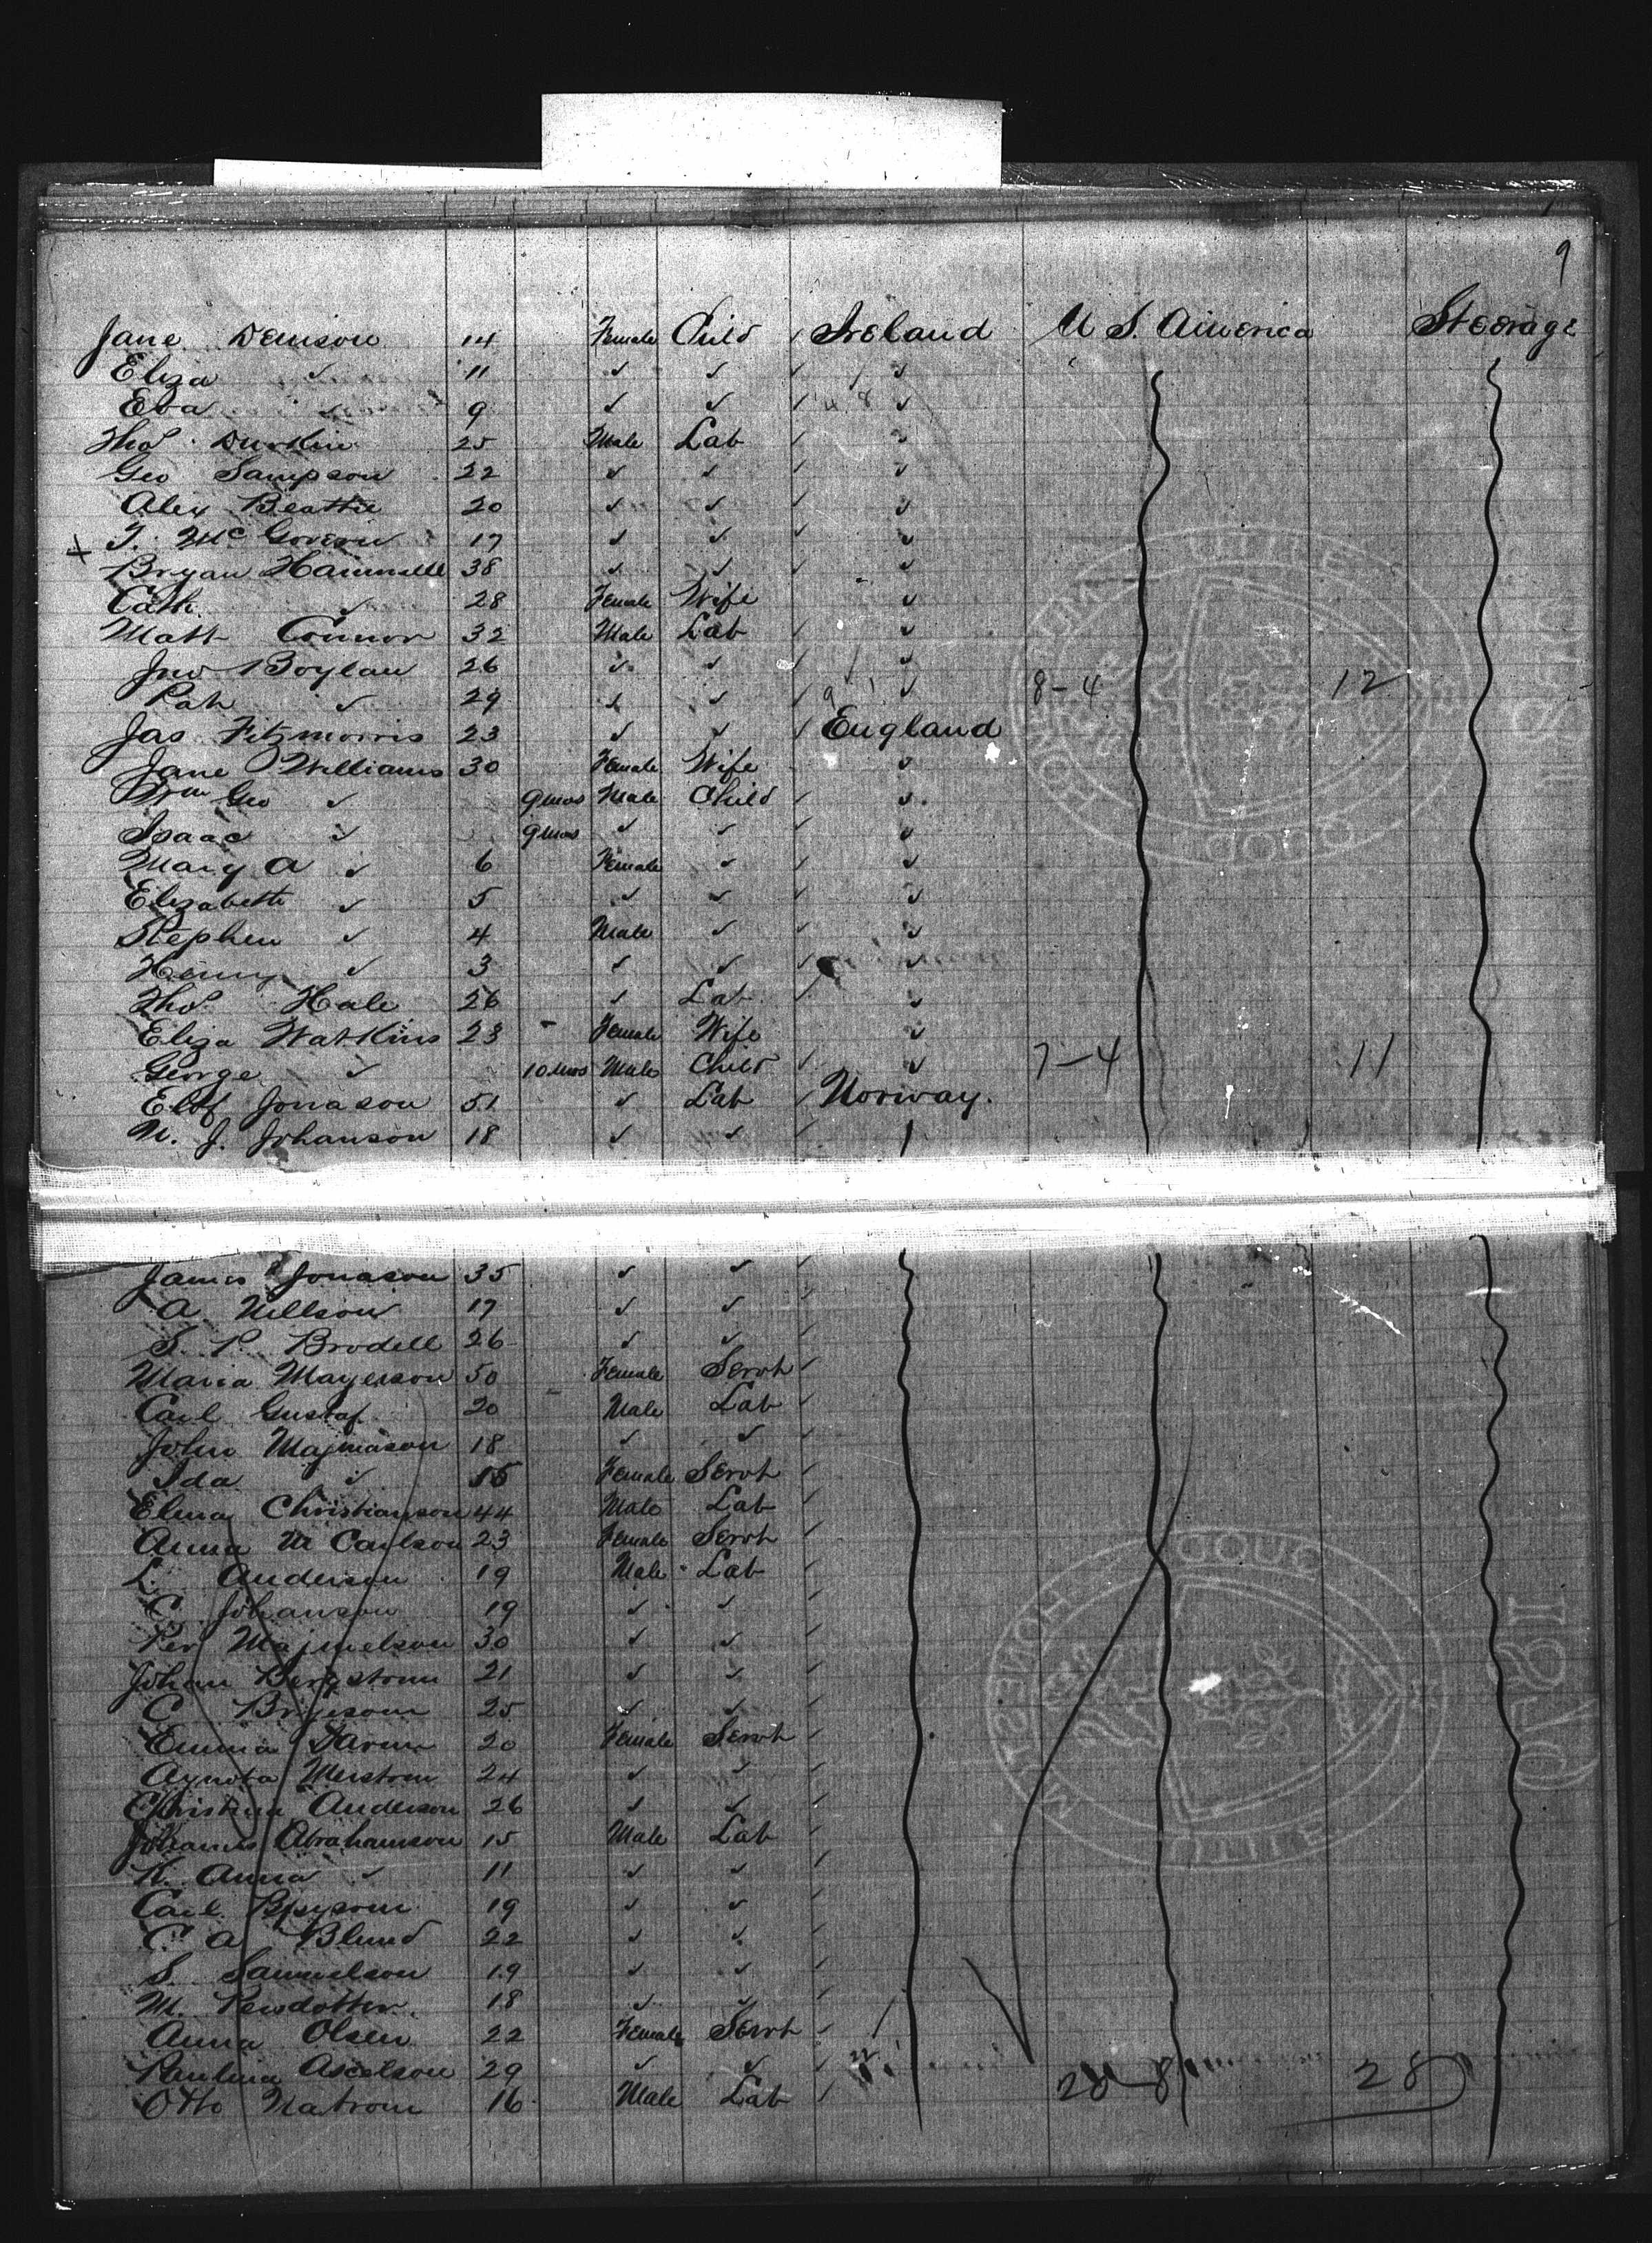 9
Jane Denison 14 Female Child / Ireland U S. America Steerage
Eliza ✓ 11 ✓ ✓ / ✓
Eva ✓ 9 ✓ ✓ / ✓
Thos Durkin 25 Male Lab / ✓
Geo Sampson 22 ✓ ✓ / ✓
Alex Beattie 20 ✓ ✓ / ✓
+ J. McGovern 17 ✓ ✓ / ✓
Bryan Hammell 38 ✓ ✓ / ✓
Cath ✓ 28 Female Wife ✓
Matt Connor 32 Male Lab / ✓
Jno Boylan 26 ✓ ✓ / ✓
Pat ✓ 29 ✓ ✓ / ✓ 8-4 12
Jas Fitzmorris 23 ✓ ✓ / England
Jane Williams 30 Female Wife ✓
Wm Geo ✓ 9 mos Male Child / ✓
Isaac ✓ 9 mos ✓ ✓ / ✓
Mary A ✓ 6 Female ✓ / ✓
Elizabeth ✓ 5 ✓ ✓ / ✓
Stephen ✓ 4 Male ✓ / ✓
Henry ✓ 3 ✓ ✓ / ✓
Thos Hale 26 ✓ Lab / ✓
Eliza Watkins 23 Female Wife ✓
George ✓ 10 mos Male Child / ✓ 7-4 11
Elof Jonason 51 ✓ Lab / Norway.
N. J. Johanson 18 ✓ ✓ /
James Jonason 35 ✓ ✓ /
A Nellson 17 ✓ ✓ /
S. P. Brodell 26 ✓ ✓ /
Maria Mayerson 50 Female Servt /
Carl Gustaf 20 Male Lab /
John Majmason 18 ✓ ✓ /
Ida ✓ 15 Female Servt /
Elma Christianson 44 Male Lab /
Anna M Carlson 23 Female Servt /
L. Anderson 19 Male Lab /
C Johanson 19 ✓ ✓ /
Per Majmelson 30 ✓ ✓ /
Johan Bergstrom 21 ✓ ✓ /
C 25 ✓ ✓ /
Emma 20 Female Servt /
24 ✓ ✓ /
Christina Anderson 26 ✓ ✓ /
Johannes Abrahamson 15 Male Lab /
K. Anna ✓ 11 ✓ ✓ /
Carl 19 ✓ ✓ /
C A Blund 22 ✓ ✓ /
S. Samuelson 19 ✓ ✓ /
M. Persdotter 18 ✓ ✓ /
Anna Olsen 22 Female Servt /
Paulina Ascelson 29 ✓ ✓ / 20-8 28
Otto Natrom 16 Male Lab /